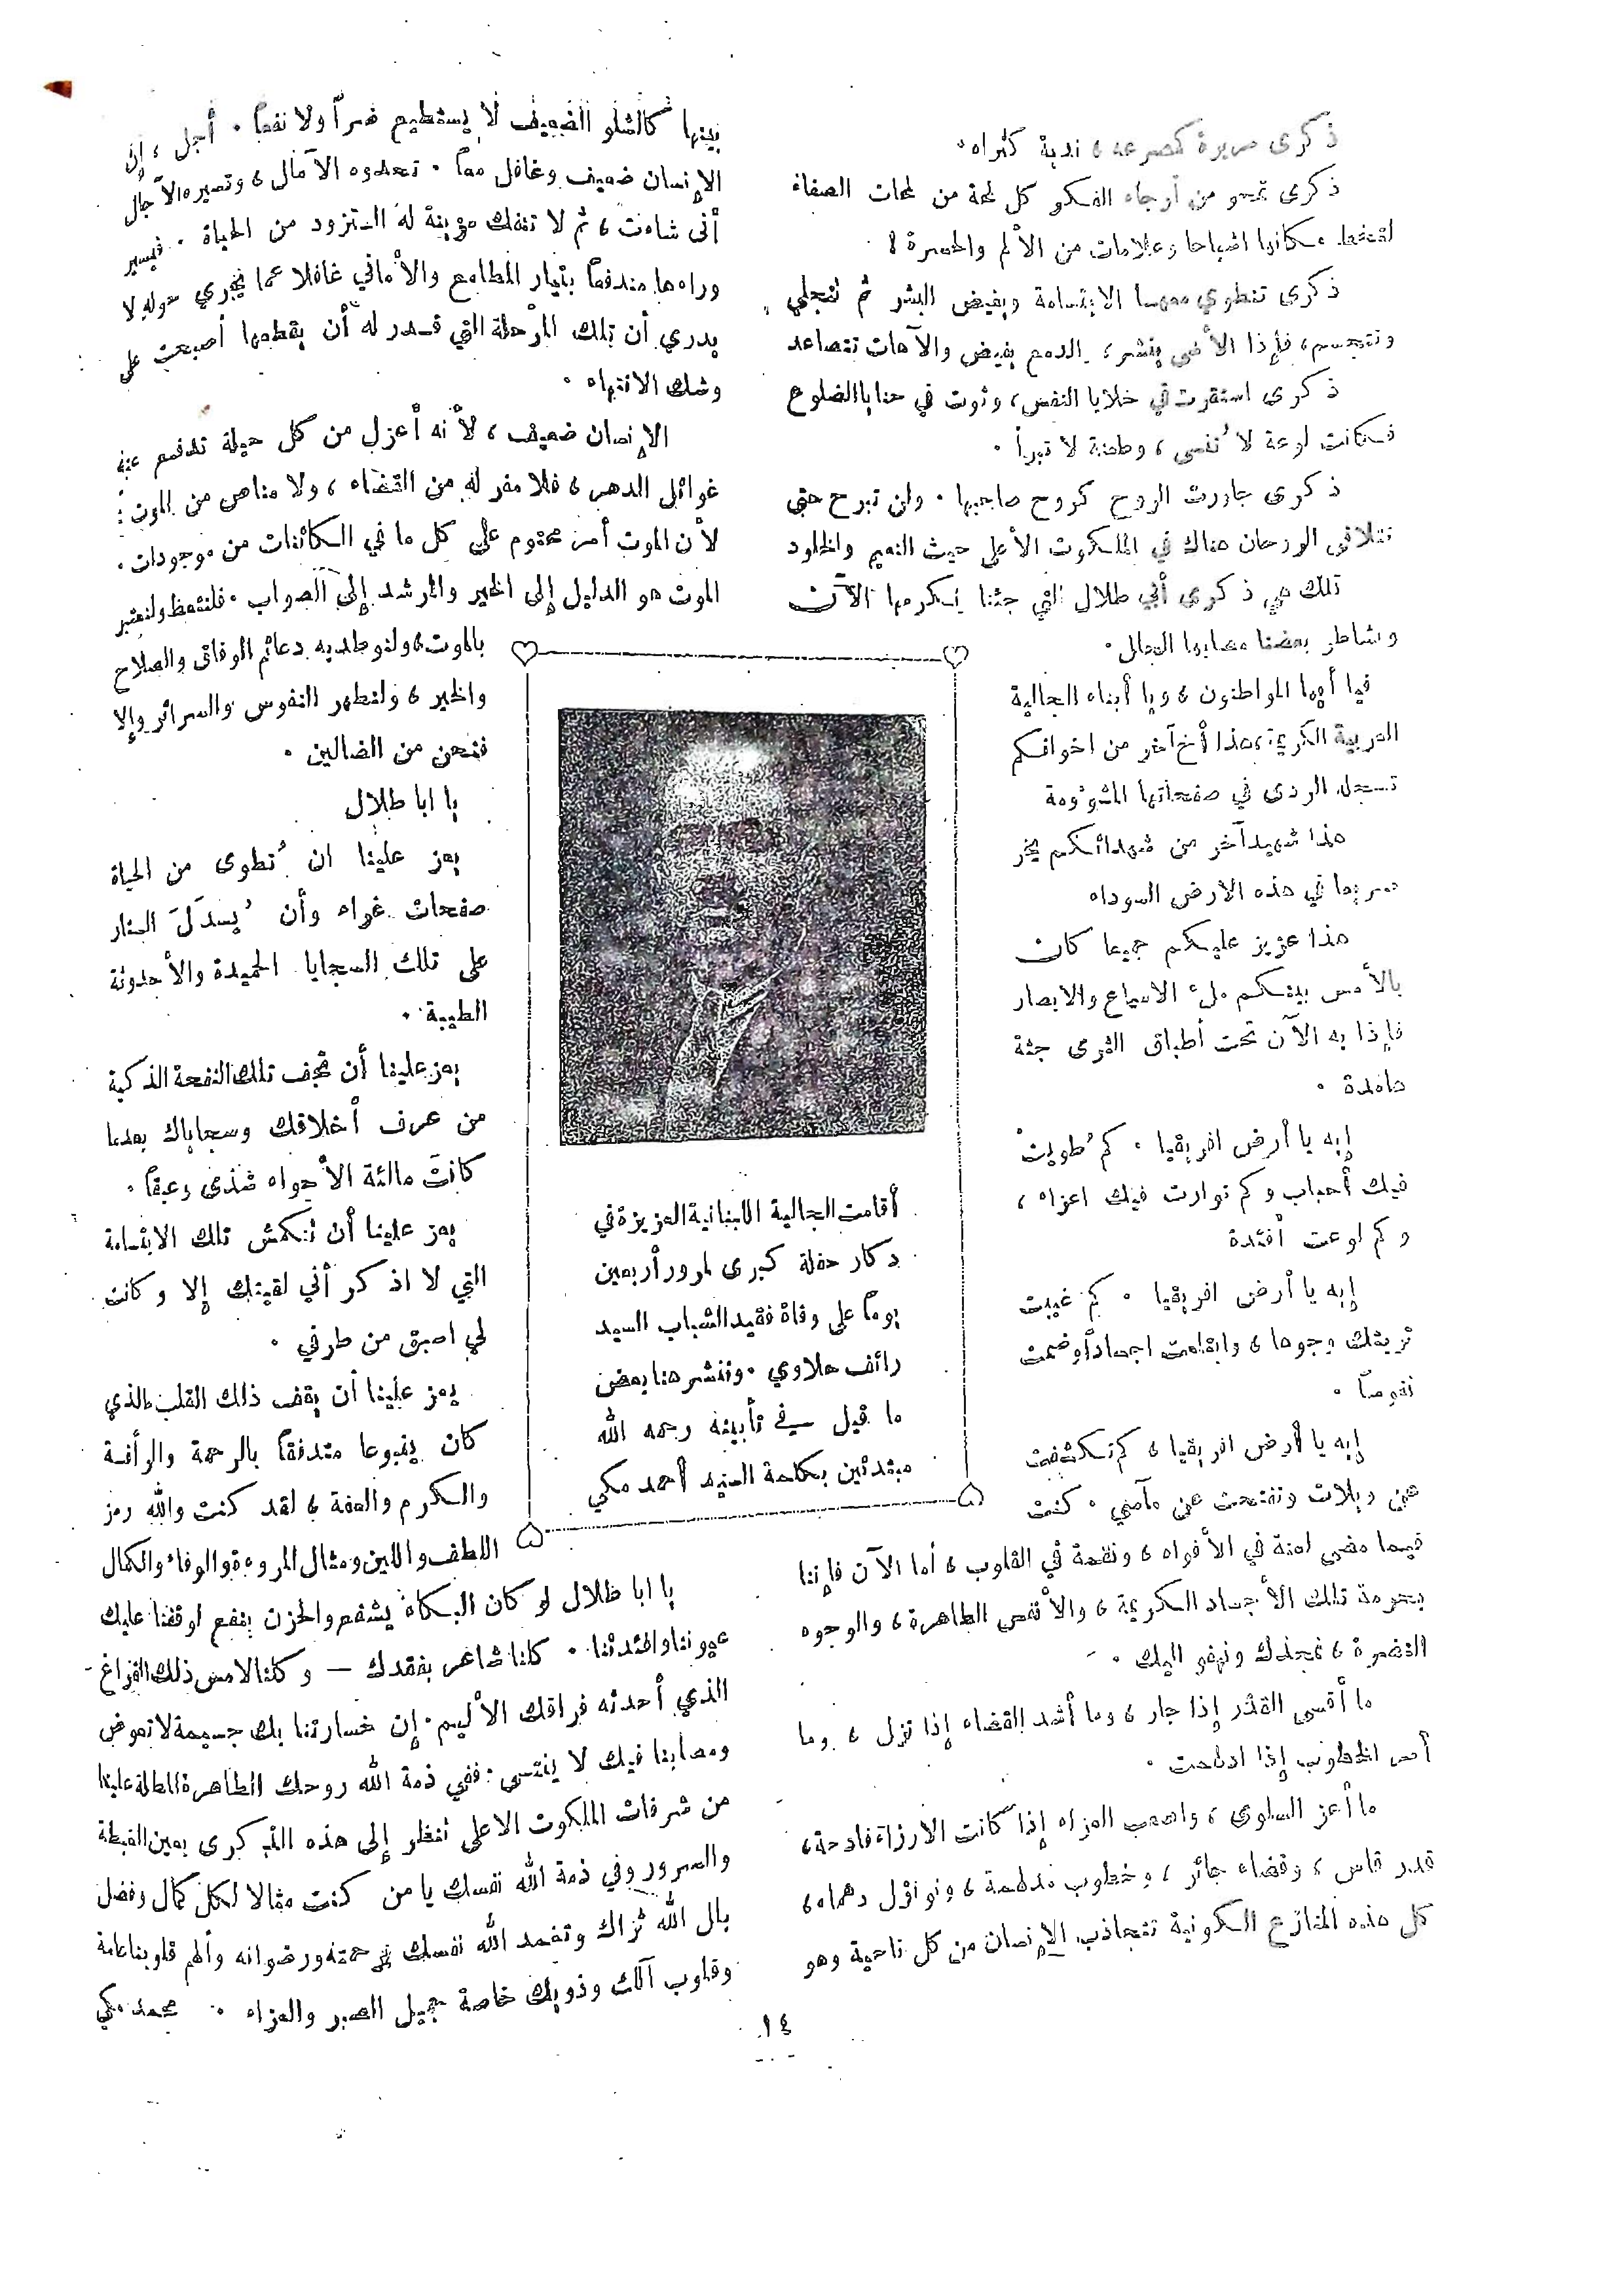 ذكرى مريرة كمصرعه، ندية كثراه.
ذكرى تمحو من أرجاء الفكر كل لمحة من لمحات الصفاء
لتخط مكانها اشباحا وعلامات من الألم والحسرة!
ذكرى تنطوي معها الابتسامة ويفيض البشر ثم تنجلي
وتتجسم، فإذا الأسى ينشر، الدمع يفيض والآهات تتصاعد
ذكرى استقرت في خلايا النفس، وثوت في حنايا الضلوع
فكانت لوعة لا تُنسى، وطعنة لا تبرأ.
ذكرى جاورت الروح كروح صاحبها. ولن تبرح حتى
تتلاقى الروحان هناك في الملكوت الأعلى حيث النعيم والخلود
تلك هي ذكرى أبي طلال التي جئنا نكرمها الآن
وشاطر بعضنا مصابها الجالى.
فيا أيها المواطنون، ويا أبناء الجالية
العربية الكريمة، هذا أخ آخر من اخوانكم
تسجله الردى في صفحاتها المشؤومة
هذا شهيد آخر من شهدائكم يخر
صريعا في هذه الارض السوداء
هذا عزيز عليكم جميعا كان
بالأمس بينكم ملء الاسماع والابصار
فإذا به الآن تحت أطباق الثرى جثة
هامدة.
إيه يا أرض افريقيا. كم طُويتْ
فيك أحباب وكم توارت فيك اعزاء،
وكم لوعت أفئدة
إيه يا أرض افريقيا. كم غيبت
تربتك وجوها، وابتلعت اجساداً وضمت
نفوساً.
إيه يا أرض افريقيا، كم تكشفت
عن ويلات وتفتحت عن مآسي. كنت
فيما مضى لعنة في الأفواه، ونقمة في القلوب، أما الآن فإننا
بحرمة تلك الأجساد الكريمة، والأنفس الطاهرة، والوجوه
النضرة، نمجدك ونهفو اليك.
ما أقسى القدَر إذا جار، وما أشد القضاء إذا نزل، وما
أمر الخطوب إذا ادلهمت.
ما أعز السلوى، واصعب العزاء إذا كانت الارزاء فادحة،
قدر قاس، وقضاء جائر، وخطوب مدلهمة، ونوازل دهماء،
كل هذه المنازع الكونية تتجاذب الإنسان من كل ناحية وهو
بينها كالشلو الضعيف لا يستطيع ضراً ولا نفعاً. أجل، إن
الإنسان ضعيف وغافل معاً. تحدوه الآمال، وتسيره الآجال
أنى شاءت، ثم لا تنفك مزينة له التزود من الحياة. فيسير
وراءها مندفعاً بتيار المطامع والأماني غافلا عما يجري حوله لا
يدري أن تلك المرحلة التي قدر له أن يقطعها أصبحت على
وشك الانتهاء.
الإنسان ضعيف، لأنه أعزل من كل حيلة تدفع عنه
غوائل الدهر، فلا مفر له من القضاء، ولا مناص من الموت:
لأن الموت أمر محتوم على كل ما في الكائنات من موجودات.
الموت هو الدليل إلى الخير والمرشد إلى الصواب. فلنتعظ ولنعتبر
بالموت، ولنوطد به دعائم الوفاق والصلاح
والخير، ولنطهر النفوس والسرائر وإلا
فنحن من الضالين.
يا ابا طلال
يعز علينا ان تُطوى من الحياة
صفحات غراء وأن يُسدَلَ الستار
على تلك السجايا الحميدة والأحدوثة
الطيبة.
يعز علينا أن تجف تلك النفحة الذكية
من عرف أخلاقك وسجاياك بعدما
كانت مالئة الأجواء شذى وعبقاً.
يعز علينا أن تنكمش تلك الابتسامة
التي لا اذكر أني لقيتك إلا وكانت
لي اسبق من طرفي.
يعز علينا أن يقف ذلك القلب الذي
كان ينبوعا متدفقاً بالرحمة والرأفة
والكرم والعفة، لقد كنت والله رمز
اللطف واللين ومثال المروءة والوفاء والكمال
يا ابا طلال لو كان البكاء يشفع والحزن ينفع لوقفنا عليك
عيوننا وافئدتنا. كلنا شاعر بفقدك — وكلنا لامس ذلك الفراغ
الذي أحدثه فراقك الأليم. إن خسارتنا بك جسيمة لا تعوض
ومصابنا فيك لا ينتسى. ففي ذمة الله روحك الطاهرة المطلة علينا
من شرفات الملكوت الاعلى تنظر إلى هذه الذكرى بعين الغبطة
والسرور وفي ذمة الله نفسك يا من كنت مثالا لكل كمال وفضل
بال الله ثراك وتغمد الله نفسك برحمته ورضوانه وألهم قلوبنا عامة
وقلوب آلك وذويك خاصة جميل الصبر والعزاء. محمد مكي
أقامت الجالية اللبنانية العزيزة في
دكار حفلة كبرى لمرور أربعين
يوماً على وفاة فقيد الشباب السيد
رائف حلاوي. وننشر هنا بعض
ما قيل في تأبينه رحمه الله
مبتدئين بكلمة السيد أحمد مكي
١٤